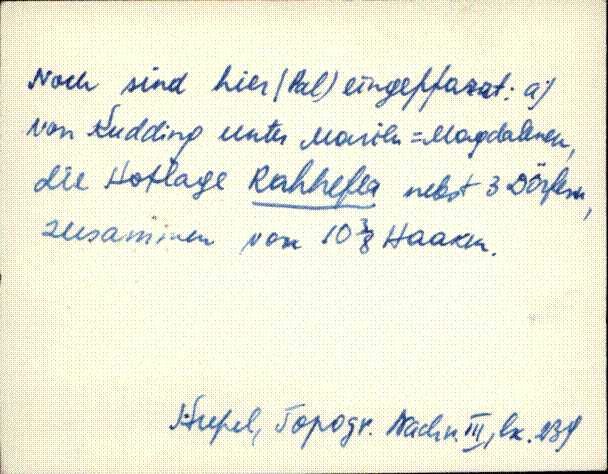 Noch sind hier (Pal) eingepfarrt: a)
von Kudding unter Marien=Magdalenen,
die Hoflage Rahhefer nebst 3 Dörfern,
zusammen von 10 3/8 Haaken.
Hupel, Topogr. Nachr. III, lk.